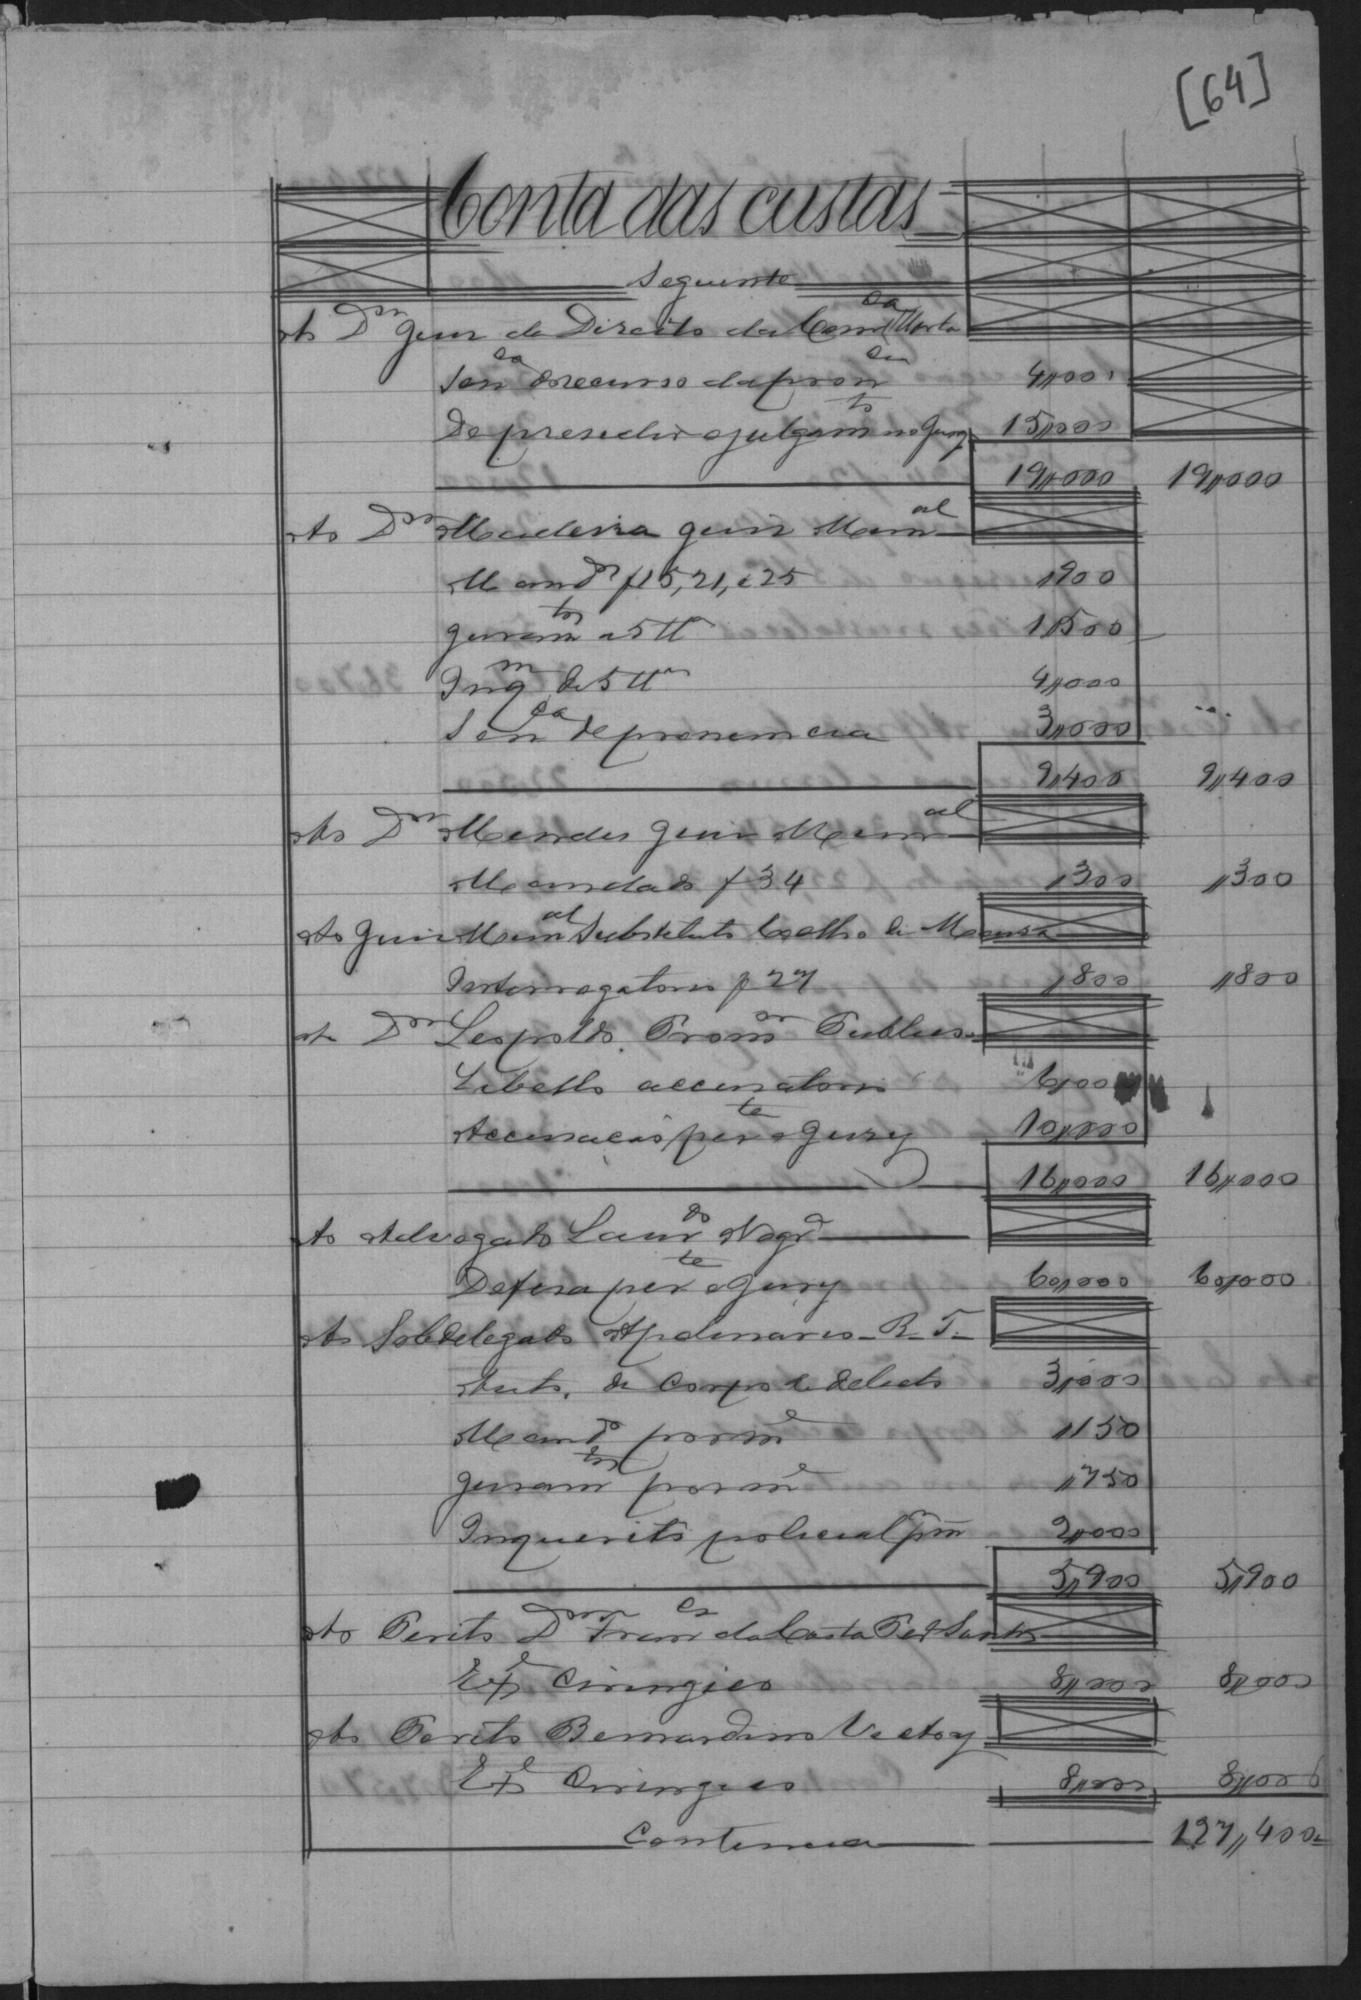 [64]
Conta das custas
Seguinte
Ao Dor Juiz de Direito da Comca Horta
Senca do recurso da pronca 4,,000
De presedir o julgamto no Jury 15,,000
19,,000 19,,000
Ao Dor Madeira Juiz Munal
Mandos f 15, 21, e 25 ,,900
Juramtos a 5 ttas 1,,500
Inqm de 5 ttas 4,,000
Senca de pronuncia 3,,000
9,,400 9,,400
Ao Dor Mendes Juiz Munal
Mandado f 34 ,,300 ,,300
Ao Juiz Munal Substituto Coelho de Moura
Interrogatorio f 27 ,,800 ,,800
Ao Dor Leopoldo Promor Publico
Libello accusatorio 6,,000
Accusacão perte o Jury 10,,000
16,,000 16,,000
Ao Advogado Laurdo
Defesa perte o Jury 60,,000 60,,000
Ao Subdelegado Apolinario R. T.
Auto de corpo de delicto 3,,000
Mando por me ,,150
Juramtos por me ,,750
Inquerito policial pm 2,,000
5,,900 5,,900
Ao Perito Dor Franco da Costa Santos
Exe Cirurgico 8,,000 8,,000
Ao Perito Bernardino Victoy
Exe Cirurgico 8,,000 8,,000
Continua 127,,400